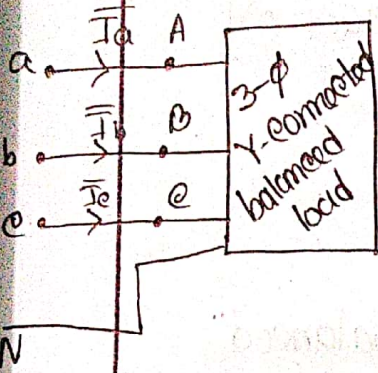 Ia A
a
Ib B
b
Ic C
c
N
3-φ
Y-connected
balanced
load